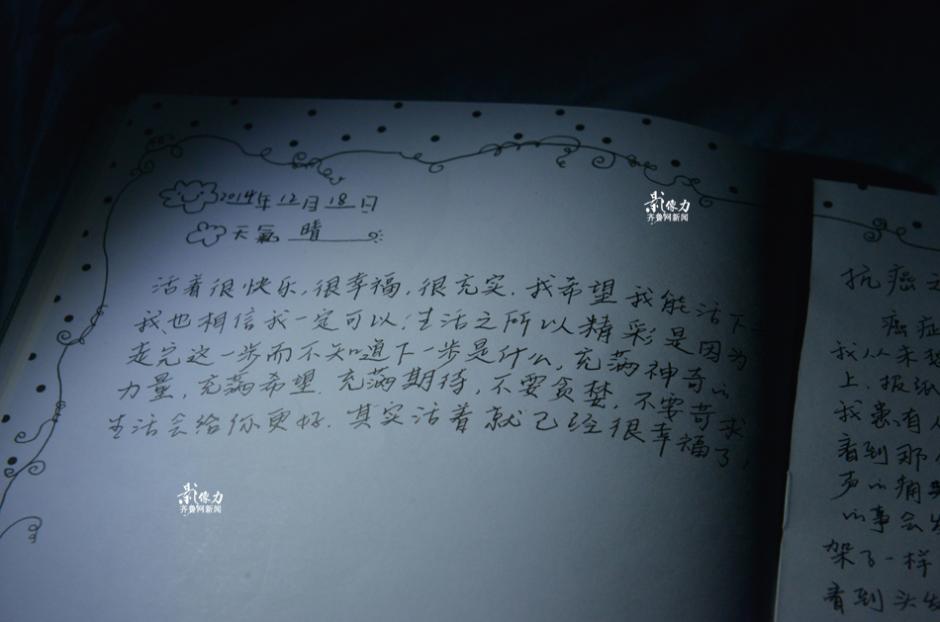 2014年 12月 18日
天氣 晴
活着很快乐,很幸福,很充实.我希望我能活下
我也相信我一定可以.生活之所以精彩是因为
走完这一步而不知道下一步是什么,充满神奇的
力量,充满希望.充满期待,不要贪婪,不要苛求
生活会给你更好.其实活着就已经很幸福了,
影像力
齐鲁网新闻
影像力
齐鲁网新闻
抗癌
癌症
我从未
上,报纸
我患有
看到那
声的痛
的事会
架了一样
看到头发